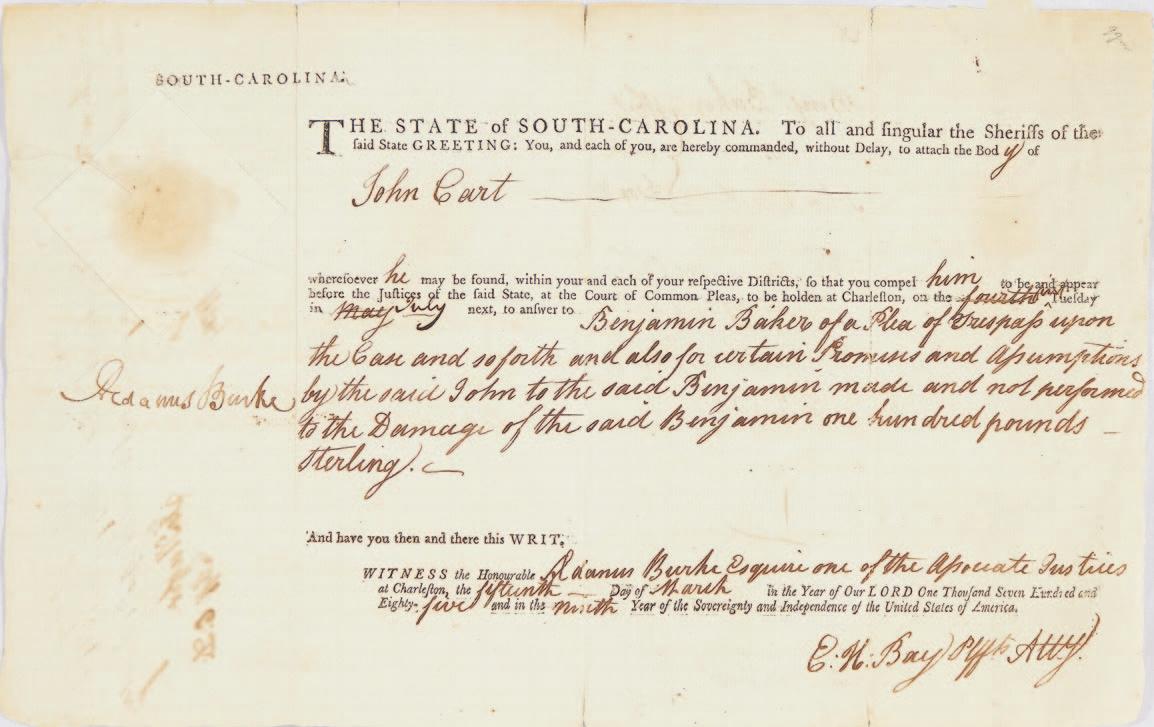 SOUTH-CAROLINA.
THE STATE of SOUTH-CAROLINA. To all and singular the Sheriffs of the
said State GREETING: You, and each of you, are hereby commanded, without Delay, to attach the Body of
John Cart
wheresoever he may be found, within your and each of your respective Districts, so that you compel him to be and appear
before the Justices of the said State, at the Court of Common Pleas, to be holden at Charleston, on the fourth first Tuesday
in May July next, to answer to Benjamin Baker of a Plea of Trespass upon
the Case and so forth and also for certain Promises and Assumptions
Aedanus Burke
by the said John to the said Benjamin made and not performed
to the Damage of the said Benjamin one hundred pounds
Sterling).
And have you then and there this WRIT.
WITNESS the Honourable Aedanus Burke Esquire one of the Associate Justices
at Charleston, the fifteenth Day of March in the Year of Our LORD One Thousand Seven Hundred and
Eighty-five and in the ninth Year of the Sovereignty and Independence of the United States of America.
E. H. Bay Plffs Atty.